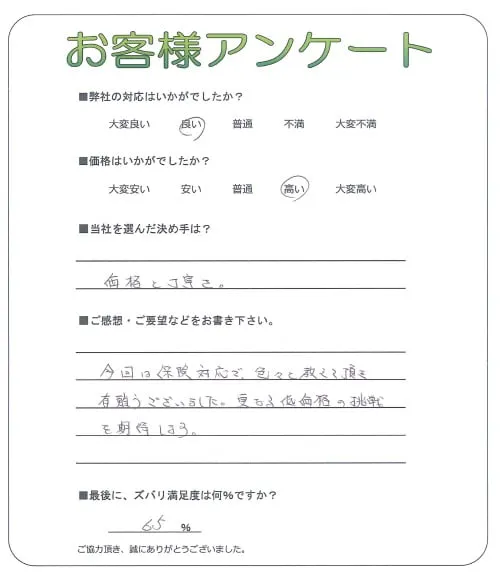 お客様アンケート
■弊社の対応はいかがでしたか？
大変良い 良い 普通 不満 大変不満
■価格はいかがでしたか？
大変安い 安い 普通 高い 大変高い
■当社を選んだ決め手は？
価格と丁寧さ。
■ご感想・ご要望などをお書き下さい。
今回は保険対応で、色々と教えて頂き
有難うございました。更なる低価格の挑戦
を期待します。
■最後に、ズバリ満足度は何%ですか？
65 %
ご協力頂き、誠にありがとうございました。